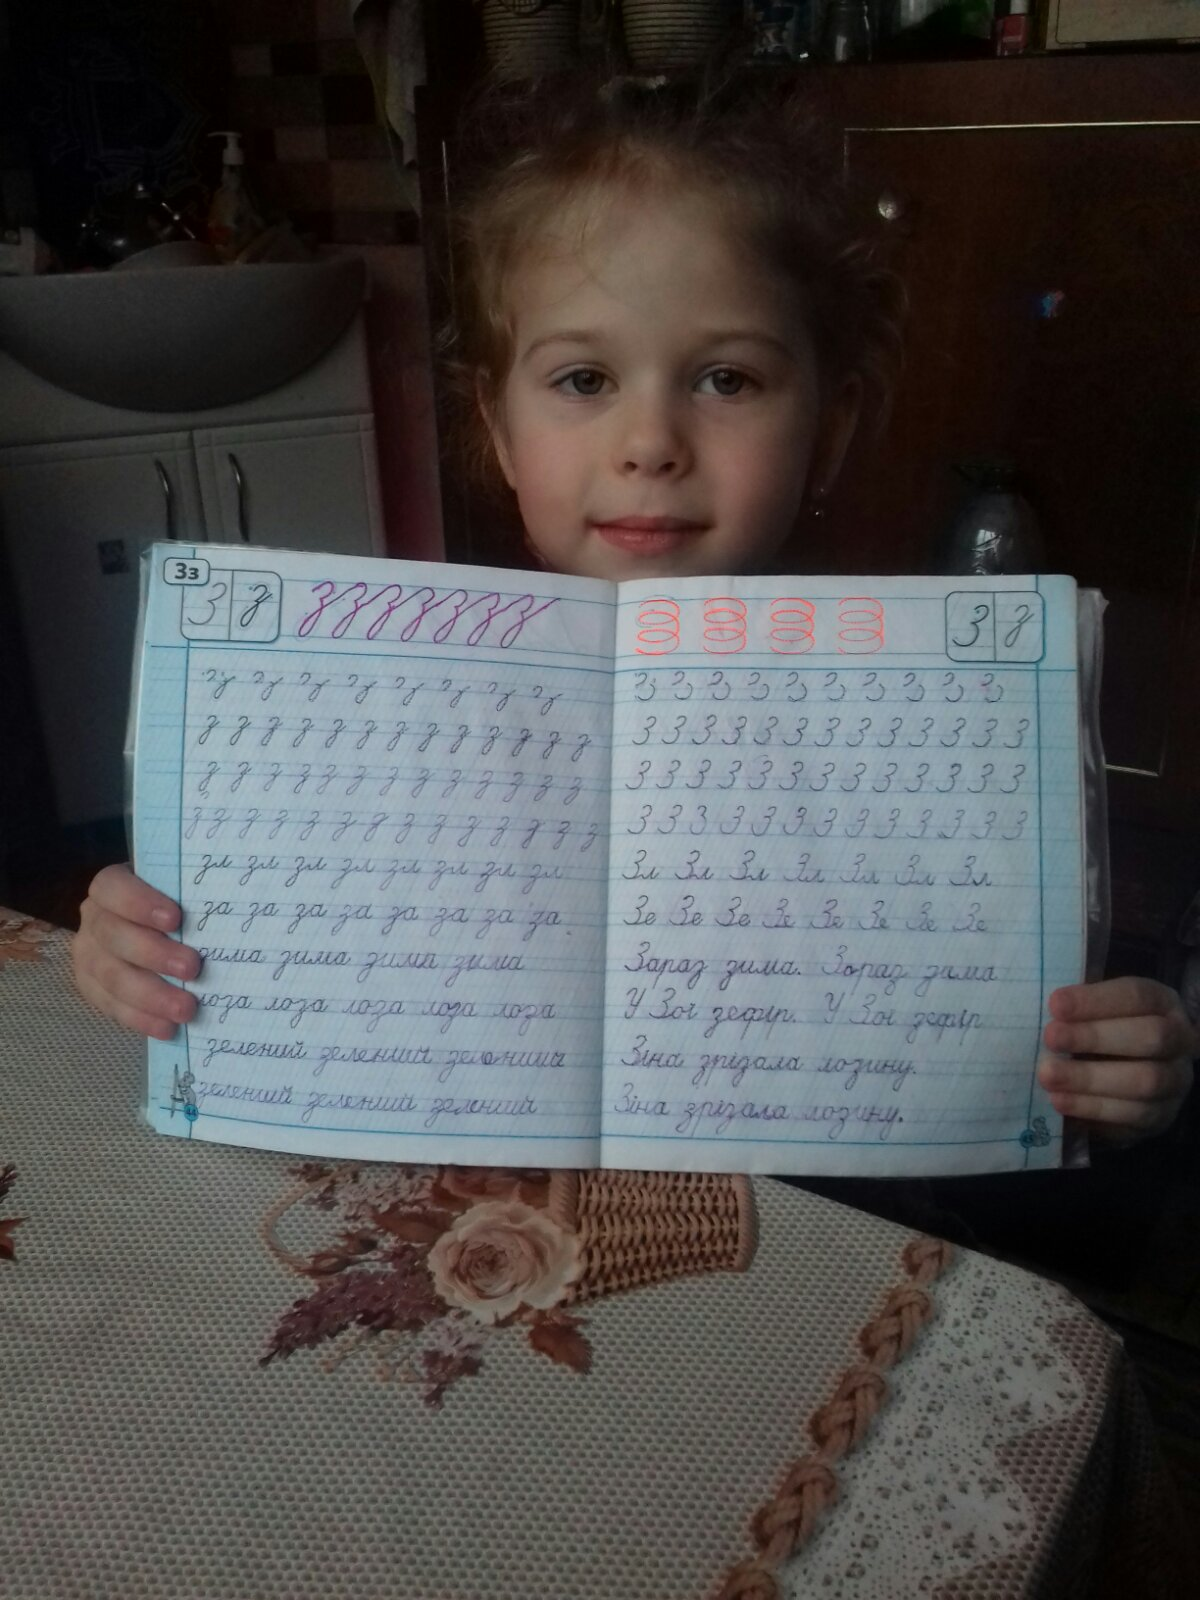 Зз
З з
з з з з з з з
з з з з з з з з з з з з з
з з з з з з з з з з з з з
з з з з з з з з з з з з з з
зл зл зл зл зл зл зл зл
за за за за за за за за
зима зима зима зима
лоза лоза лоза лоза лоза
зелений зелений зелений
зелений зелений зелений
З з
З З З З З З З З З З З З З
З З З З З З З З З З З З З
З З З З З З З З З З З З З
Зл Зл Зл Зл Зл Зл Зл
Зе Зе Зе Зе Зе Зе Зе Зе
Зараз зима. Зараз зима
У Зої зефір. У Зої зефір
Зіна зрізала лозину.
Зіна зрізала лозину.